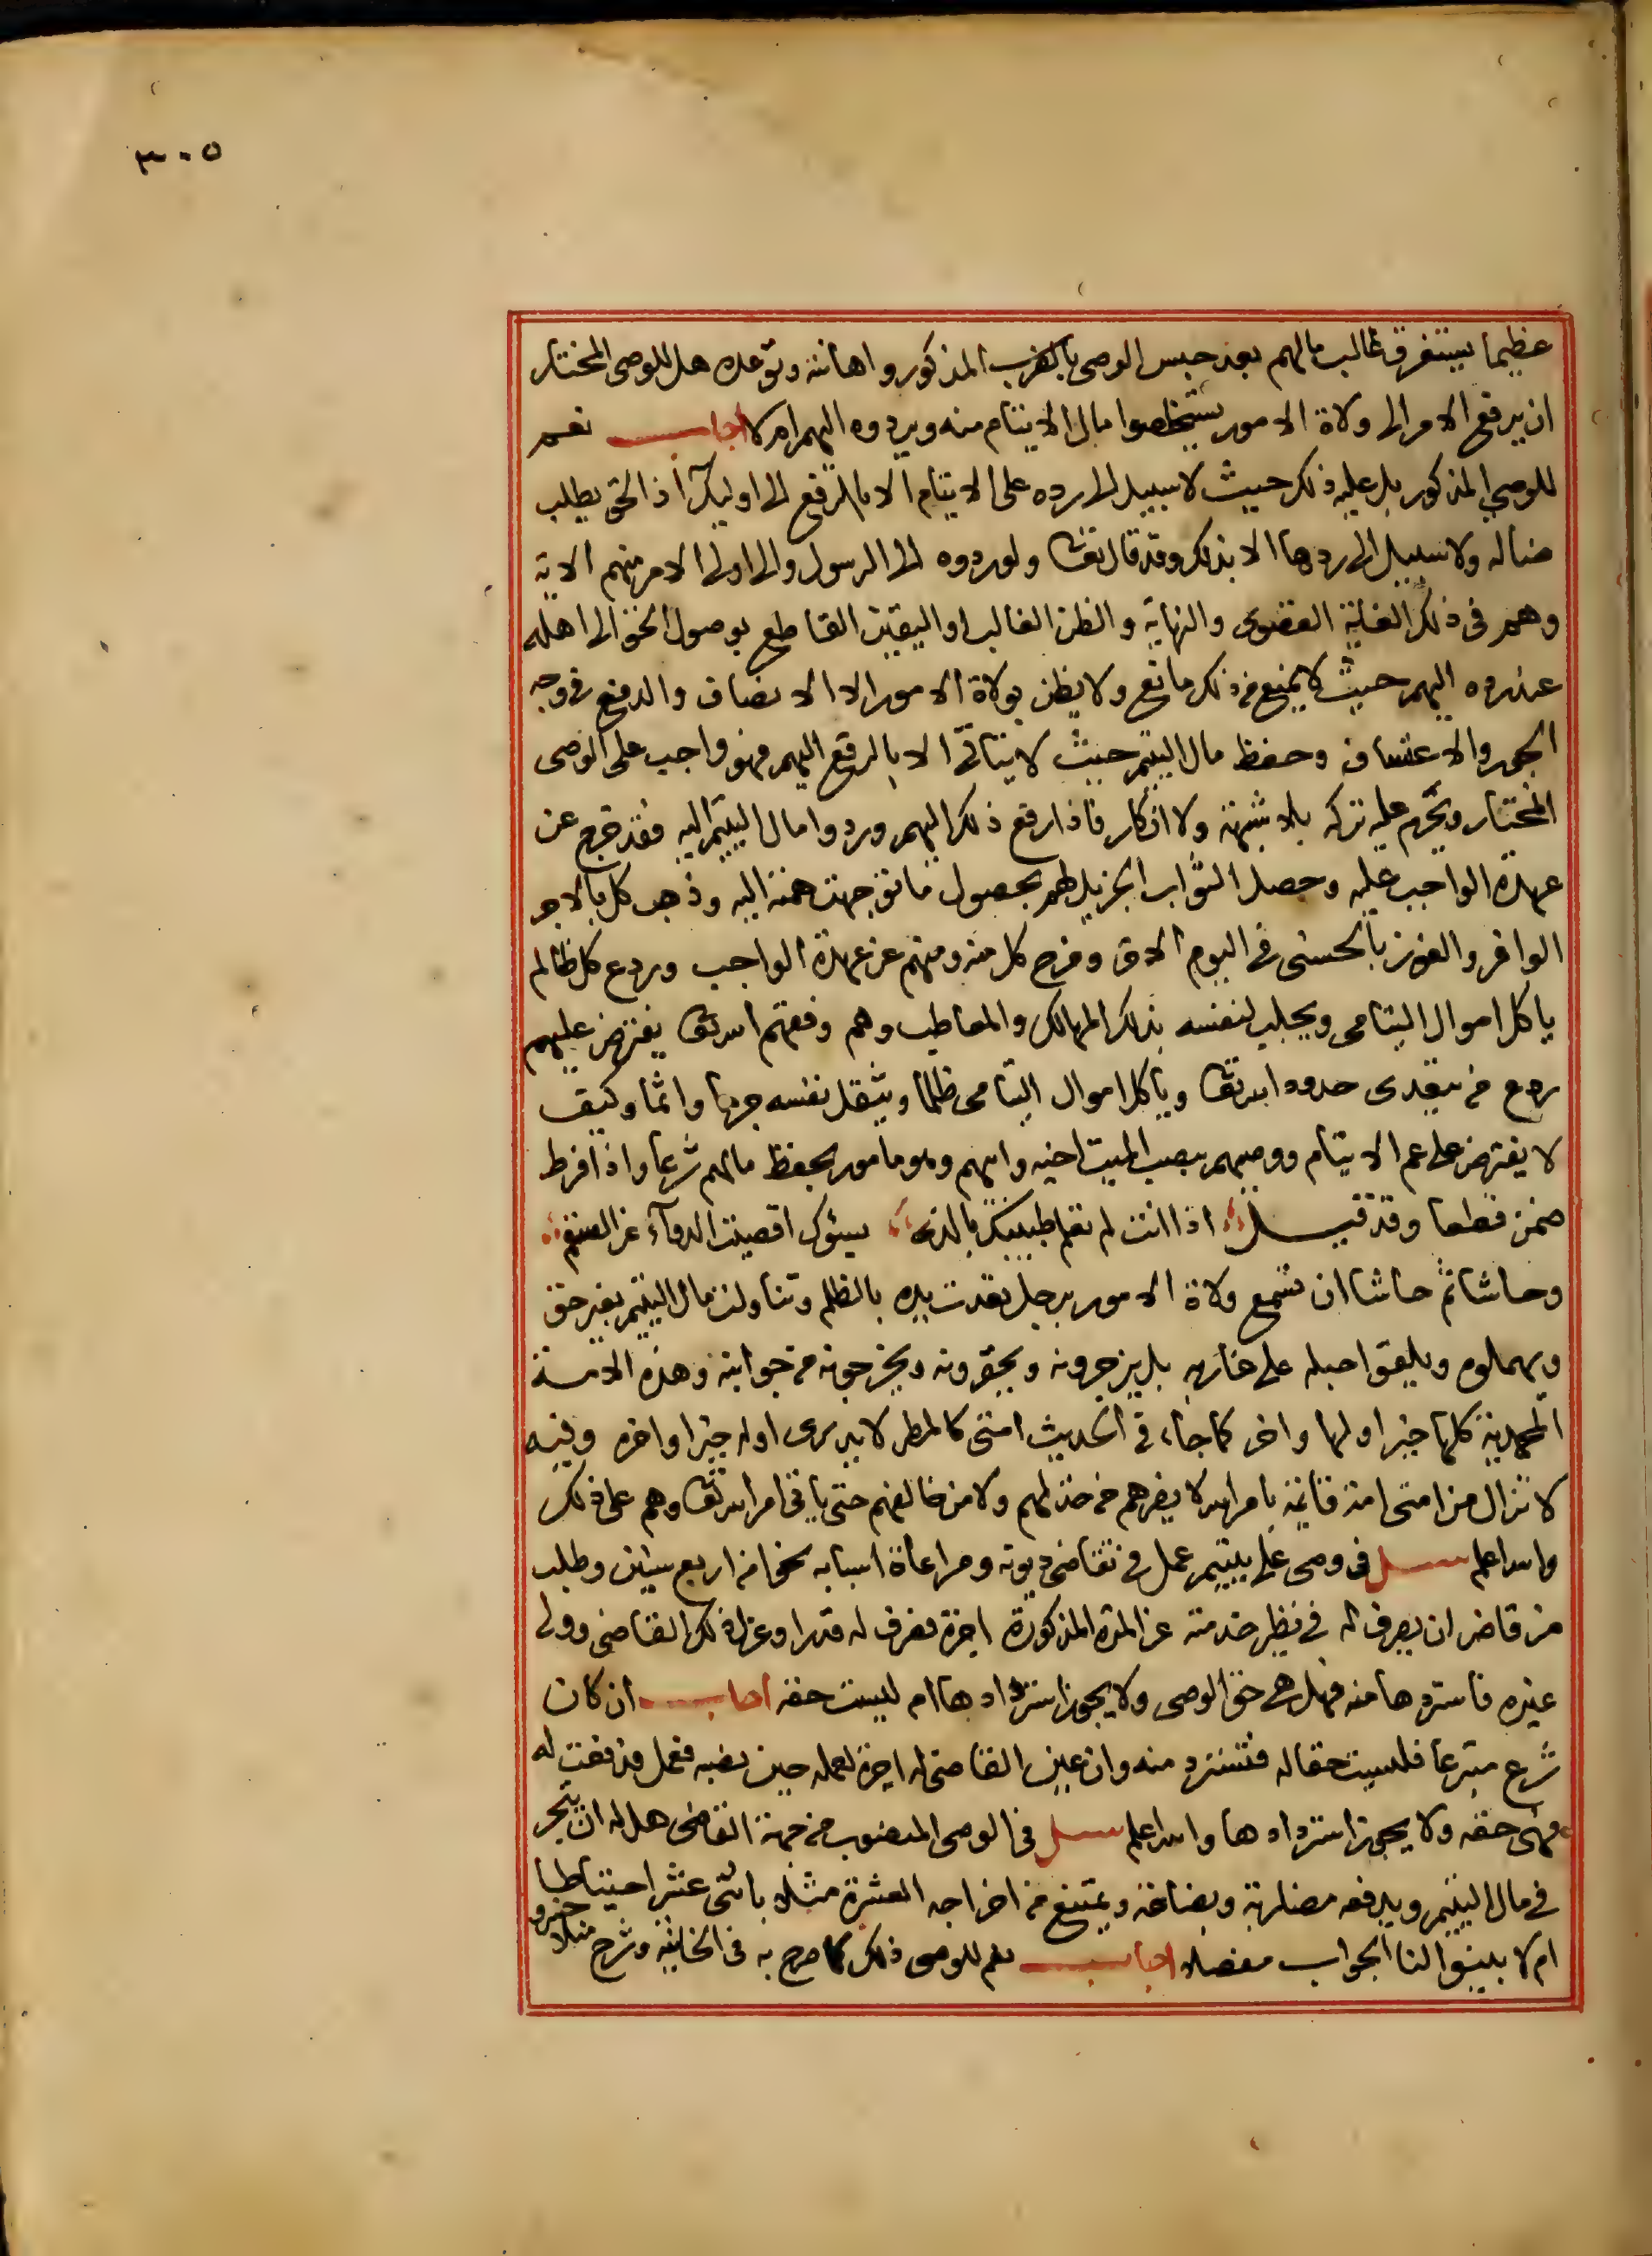 ٣٠٥
عظيما يستغرق غالب مالهم بعد حبس الوصي بالضرب المذكور واهانته وتوعده هل للوصي المختار
ان يرفع الامر الى ولاة الامور يستخلصوا مال الايتام منه ويردوه اليهم ام لا اجاب نعم
للوصي المذكور بل عليه ذلك حيث لا سبيل الى رده على الايتام الا بالرفع الى اوليك اذ الحق يطلب
ضاله ولا سبيل الى ردها الا بذلك وقد قال تعا ولو ردوه الى الرسول والى اولى الامر منهم الاية
وهم في ذلك الغاية القصوى والنهاية والظن الغالب او اليقين القاطع بوصول الحق الى اهله
عند رده اليهم حيث لا يمنع من ذلك مانع ولا يظن بولاة الامور الا الانصاف والدفع في وجه
الجور والاعتساف وحفظ مال اليتيم حيث لا يتاتى الا بالرفع اليهم فهو واجب على الوصى
المختار ويحرم عليه تركه بلا شبهة ولا انكار فاذا رفع ذلك اليهم وردوا مال اليتيم اليه فقد خرج عن
عهدة الواجب عليه وحصل الثواب الجزيل لهم بحصول ما توجهت همته اليه وذهب كل بالاجر
الوافر والفوز بالحسنى في اليوم الاخر وخرج كل منه ومنهم عن عهدة الواجب وردع كل ظالم
ياكل اموال اليتامى ويجلب لنفسه بذلك المهالك والمعاطب وهم وفقهم الله تعا يفترض عليهم
ردع من يتعدى حدود الله تعا وياكل اموال اليتامى ظلما ويثقل نفسه جرما واثما وكيف
لا يفترض على عم الايتام ووصيهم بنصب الميت اخيه وابيهم وهو مامور بحفظ مالهم شرعا واذا فرط
ضمن قطعا وقد قيل اذا انت لم تعلم طبيبك بالذي يسؤك اقصيت الدوآء عن السقم
وحاشا ثم حاشا ان تسمع ولاة الامور برجل تعدت يده بالظلم وتناولت مال اليتيم بغير حق
ويهملوه ويلقوا حبله على غاربه بل يزجرونه ويحقرونه ويخرجونه من جوابته وهذه الامة
المحمدية كلها خير اولها واخر كما جاء في الحديث امتى كالمطر لا يدرى اوله خير او اخره وفيه
لا تزال من امتى امة قائمة بامر الله لا يضرهم من خذلهم ولا من خالفهم حتى ياتى امر الله تعا وهم على ذلك
والله اعلم سئل في وصى على يتيم عمل في تقاضى ديونه ومراعاة اسبابه نحوا من اربع سنين وطلب
من قاض ان يصرف له في نظير خدمته عن المدة المذكورة اجرة فصرف له قدرا وعزل ذلك القاضى وولى
غيره فاستردها منه فهل هى حق الوصى ولا يجوز استردادها ام ليست حقه اجاب ان كان
شرع متبرعا فليست حقا له فتسترد منه وان عين القاضى له اجرة لعمله حين نصبه فعمل فدفعت له
فهى حقه ولا يجوز استردادها والله اعلم سئل في الوصى المنصوب من جهة القاضى هل له ان يتجر
في مال اليتيم ويدفعه مضاربة وبضاعة ويمتنع من اخراجه العشرة مثلا باثنى عشر احتياطا
ام لا بينوا لنا الجواب مفصلا اجاب نعم للوصى ذلك كما صرح به في الخانية وشرح منلا خسرو